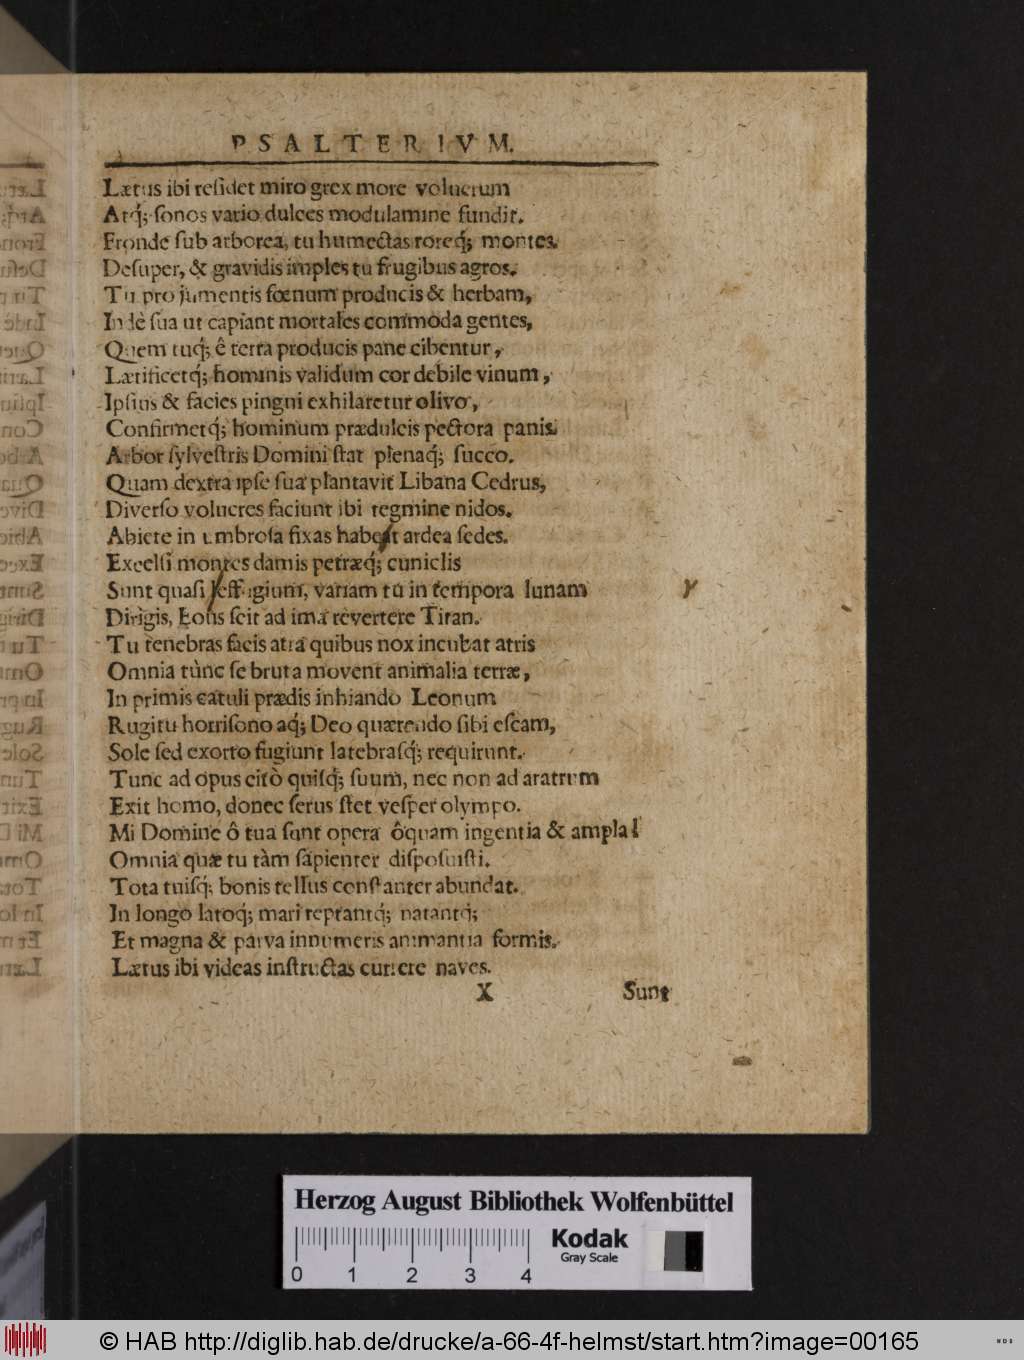 PSALTERIVM.
Lætus ibi reſidet miro grex more volucrum
Atq́; ſonos vario dulces modulamine fundit.
Fronde ſub arborea, tu humectas roreq́; montes.
Deſuper, & gravidis imples tu frugibus agros.
Tu pro jumentis fœnum producis & herbam,
Indè ſua ut capiant mortales commoda gentes,
Quem tuq́; ê terra producis pane cibentur,
Lætificetq́; hominis validum cor debile vinum,
Ipſius & facies pingui exhilaretur olivo,
Confirmetq́; hominum prædulcis pectora panis.
Arbor ſylveſtris Domini ſtat plenaq́; ſucco.
Quam dextra ipſe ſua plantavit Libana Cedrus,
Diverſo volucres faciunt ibi tegmine nidos.
Abiete in umbroſa fixas habet ardea ſedes.
Excelſi montes damis petræq́; cuniclis
Sunt quaſi effugium, variam tu in tempora lunam
Dirigis, Eous ſcit ad ima revertere Titan.
Tu tenebras facis atra quibus nox incubat atris
Omnia tùnc ſe bruta movent animalia terræ,
In primis catuli prædis inhiando Leonum
Rugitu horriſono aq́; Deo quærendo ſibi eſcam,
Sole ſed exorto fugiunt latebraſq́; requirunt.
Tunc ad opus citò quiſq́; ſuum, nec non ad aratrum
Exit homo, donec ſerus ſtet veſper olympo.
Mi Domine ô tua ſunt opera ôquam ingentia & ampla!
Omnia quæ tu tàm ſapienter diſpoſuiſti.
Tota tuiſq́; bonis tellus conſtanter abundat.
In longo latoq́; mari reptantq́; natantq́;
Et magna & parva innumeris animantia formis.
Lætus ibi videas inſtructas currere naves.
X Sunt
Herzog August Bibliothek Wolfenbüttel
Kodak
Gray Scale
0 1 2 3 4
© HAB http://diglib.hab.de/drucke/a-66-4f-helmst/start.htm?image=00165